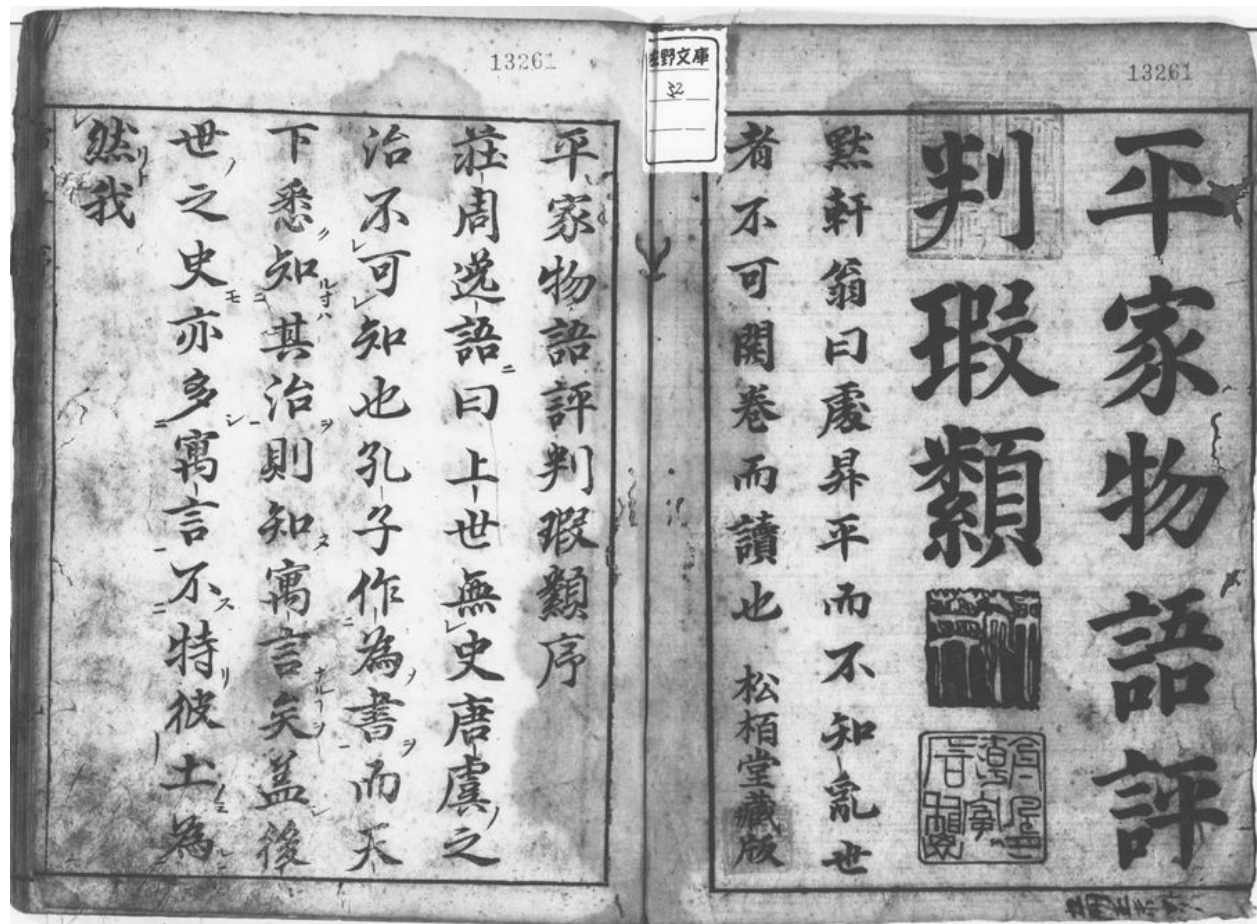 13261
平家物語評
判瑕纇
黙軒翁曰處昇平而不知亂世
者不可開巻而讀也 松栢堂藏版
野文庫
32
13261
平家物語評判瑕纇序
莊周逸語曰上世無史唐虞之
治不可知也孔子作為書而天
下悉知其治則知寓言矣盖後
世之史亦多寓言不特彼土為
然我